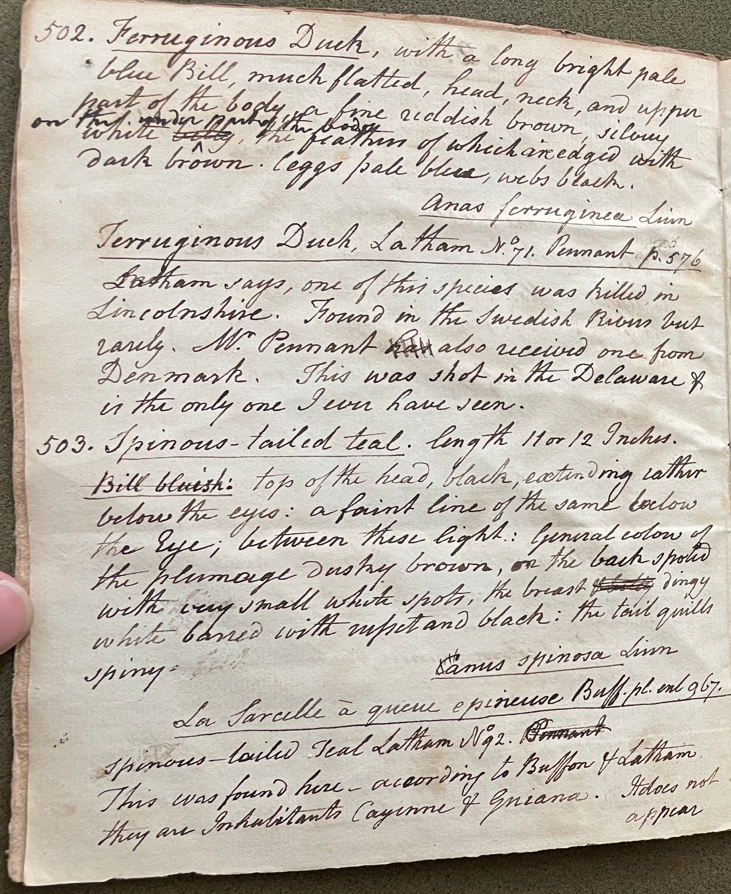 502. Ferruginous Duck, with a long bright pale
blue Bill, much flatted, head, neck, and upper
part of the body, a fine reddish brown, silvery
on the under part of the body
white belly, the feathers of which are edged with
dark brown. leggs pale blue, webs black.
Anas ferruginea Linn
Ferruginous Duck, Latham No. 71. Pennant p. 576
Latham says, one of this species was killed in
Lincolnshire. Found in the Swedish Rivers but
rarely. Mr Pennant has also received one from
Denmark. This was shot in the Delaware &
is the only one I ever have seen.
503. Spinous-tailed teal. length 11 or 12 Inches.
Bill bluish: top of the head, black, extending rather
below the eyes: a faint line of the same below
the Eye; between these light: General colour of
the plumage dusky brown, on the back spotted
with very small white spots, the breast dingy
white barred with russet and black: the tail quills
spiny.
Anus spinosa Linn
La Sarcelle à queue epineuse Buff. pl. enl 967.
spinous-tailed Teal Latham No 92. Pennant
This was found here - according to Buffon & Latham
they are Inhabitants Cayenne & Guiana. It does not
appear